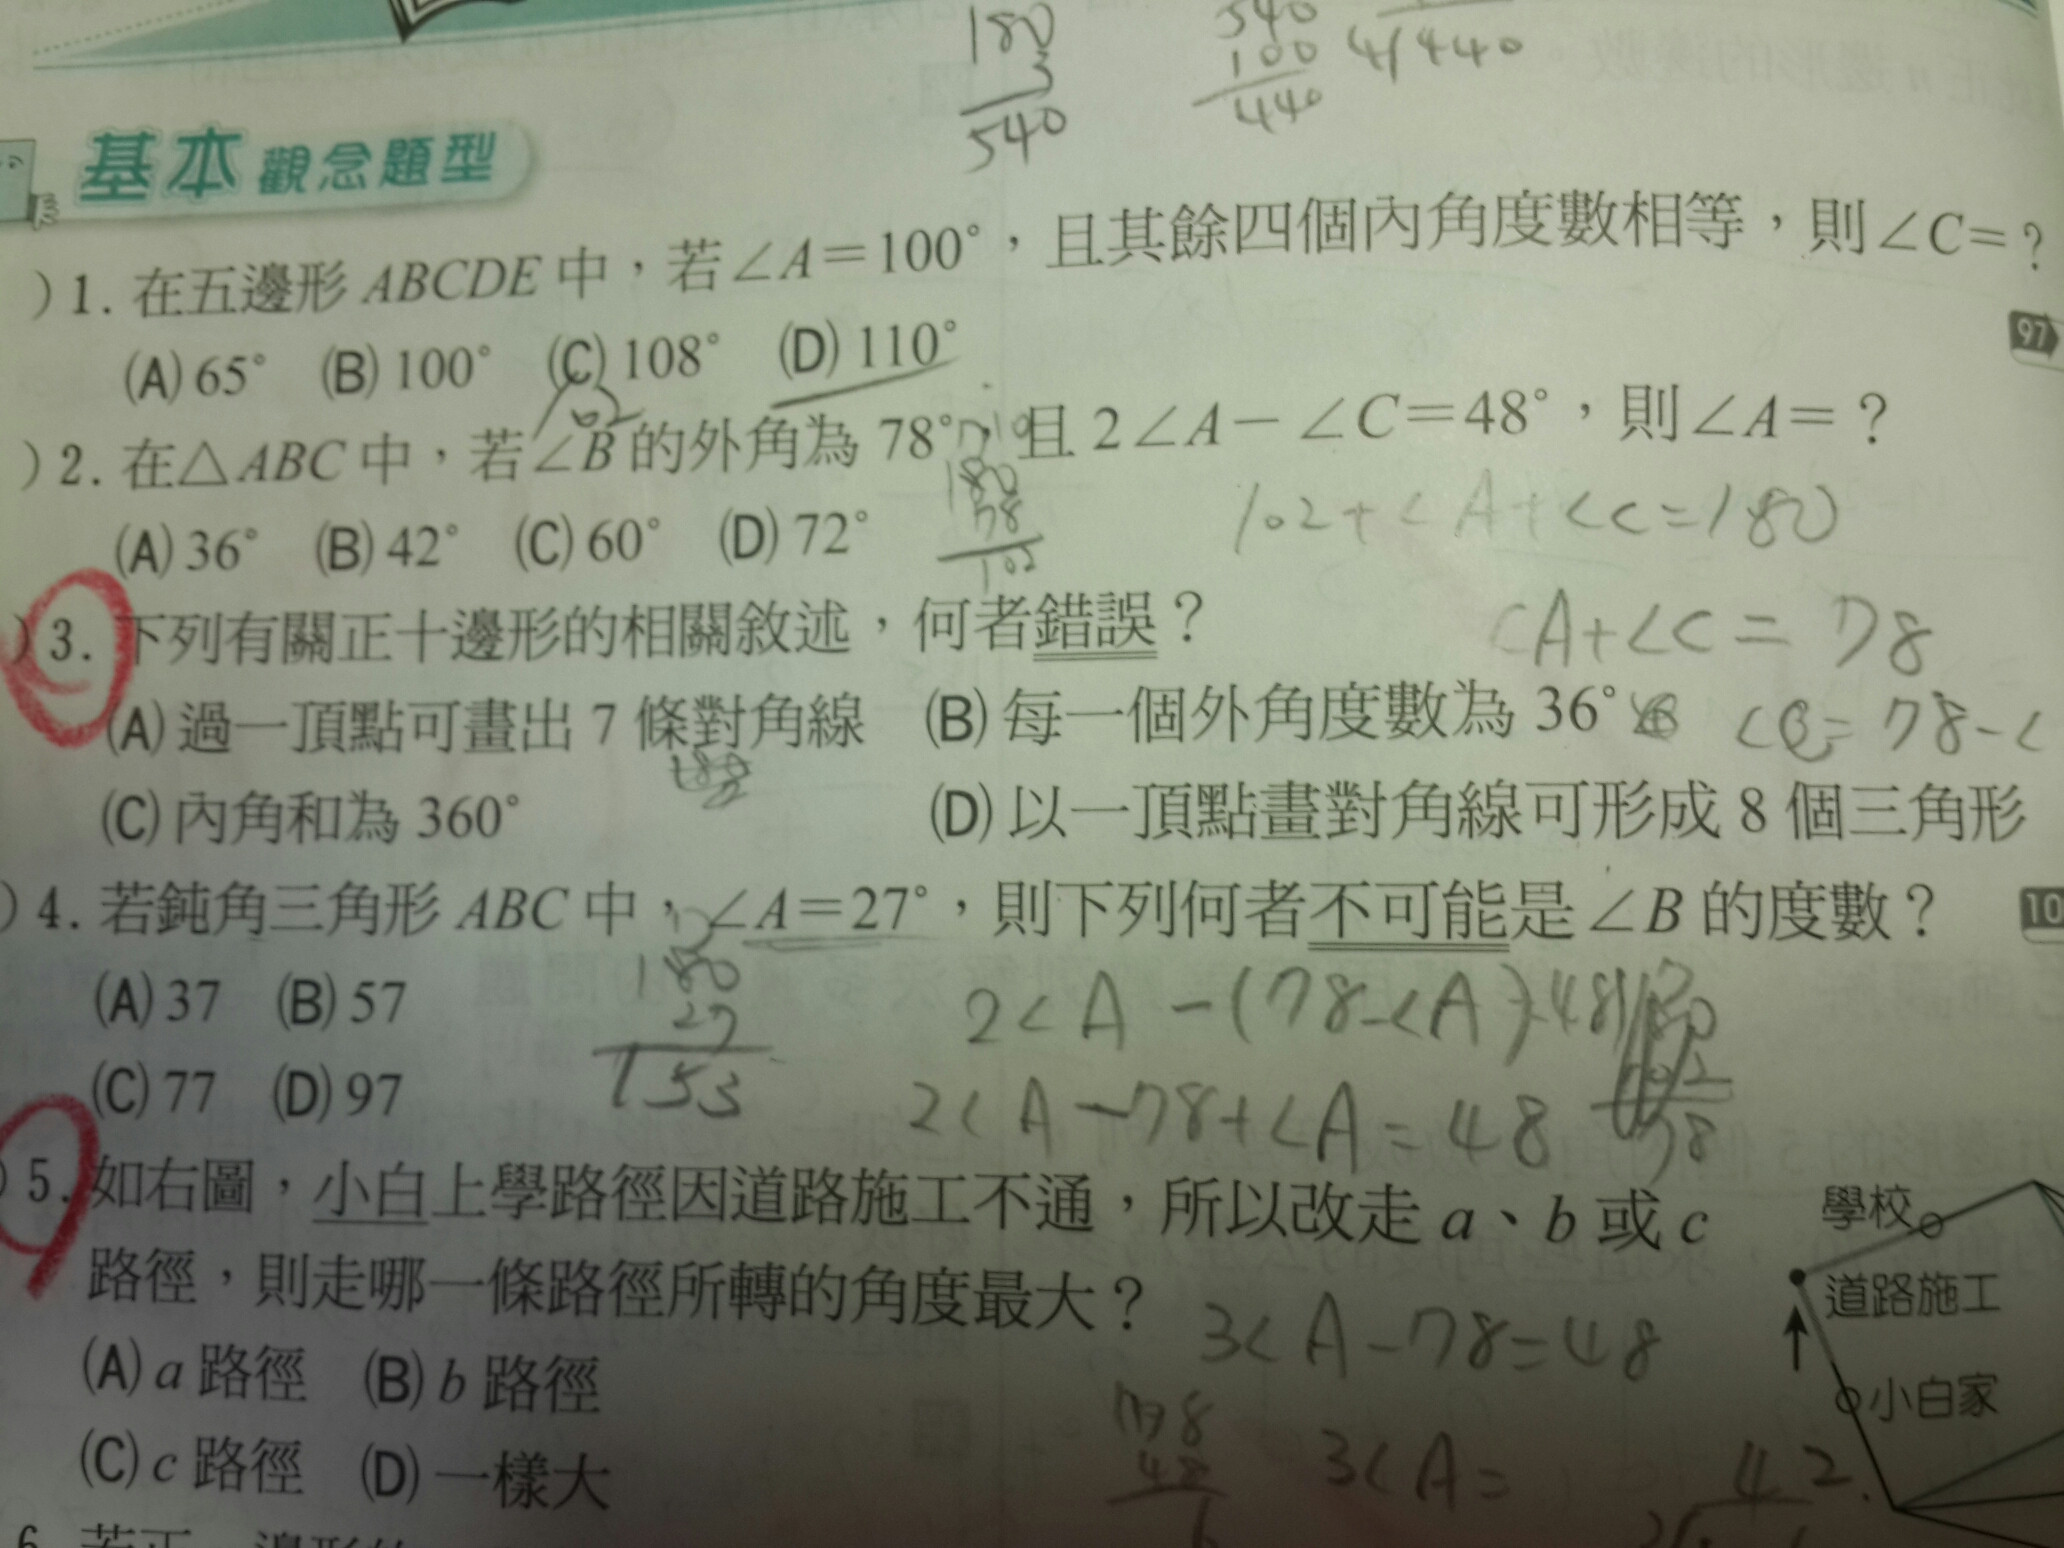 180
3
540
540
100
440
4/440
基本觀念題型
)1. 在五邊形ABCDE中，若∠A＝100°，且其餘四個內角度數相等，則∠C＝？
(A) 65° (B) 100° (C) 108° (D) 110°
97
102
)2. 在△ABC中，若∠B的外角為 78°，且 2∠A－∠C＝48°，則∠A＝？
(A) 36° (B) 42° (C) 60° (D) 72°
180
78
102
102+<A+<C=180
)3. 下列有關正十邊形的相關敘述，何者錯誤？
<A+<C=78
(A) 過一頂點可畫出 7 條對角線 (B) 每一個外角度數為 36°
78-<
(C) 內角和為 360° (D) 以一頂點畫對角線可形成 8 個三角形
)4. 若鈍角三角形ABC中，∠A＝27°，則下列何者不可能是∠B的度數？
10
(A) 37 (B) 57
180
27
153
2<A-(78-<A)
(C) 77 (D) 97
2<A-78+<A=48
78
)5. 如右圖，小白上學路徑因道路施工不通，所以改走a、b或c
路徑，則走哪一條路徑所轉的角度最大？
學校
道路施工
小白家
3<A-78=48
(A) a路徑 (B) b路徑
3<A=
(C) c路徑 (D) 一樣大
42